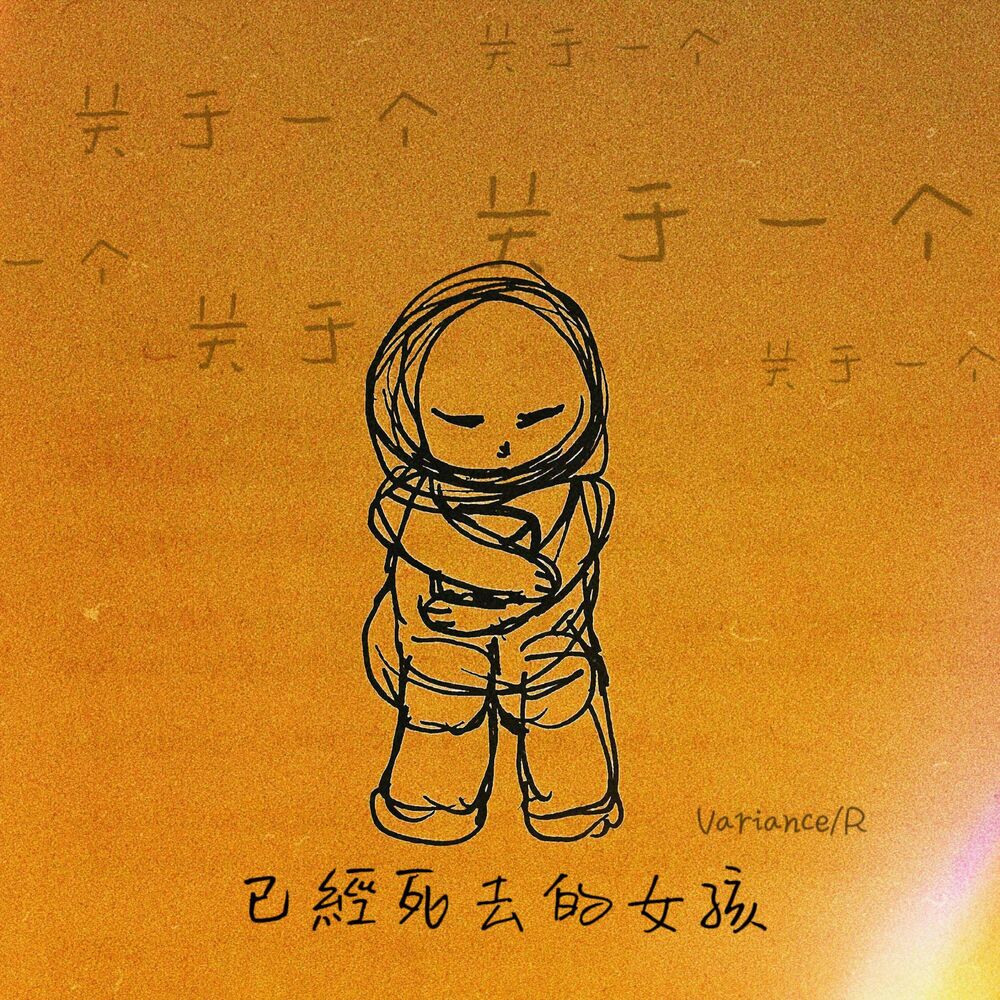 关于一个
关于一个
关于一个
一个
关于
关于一个
Variance/R
已經死去的女孩